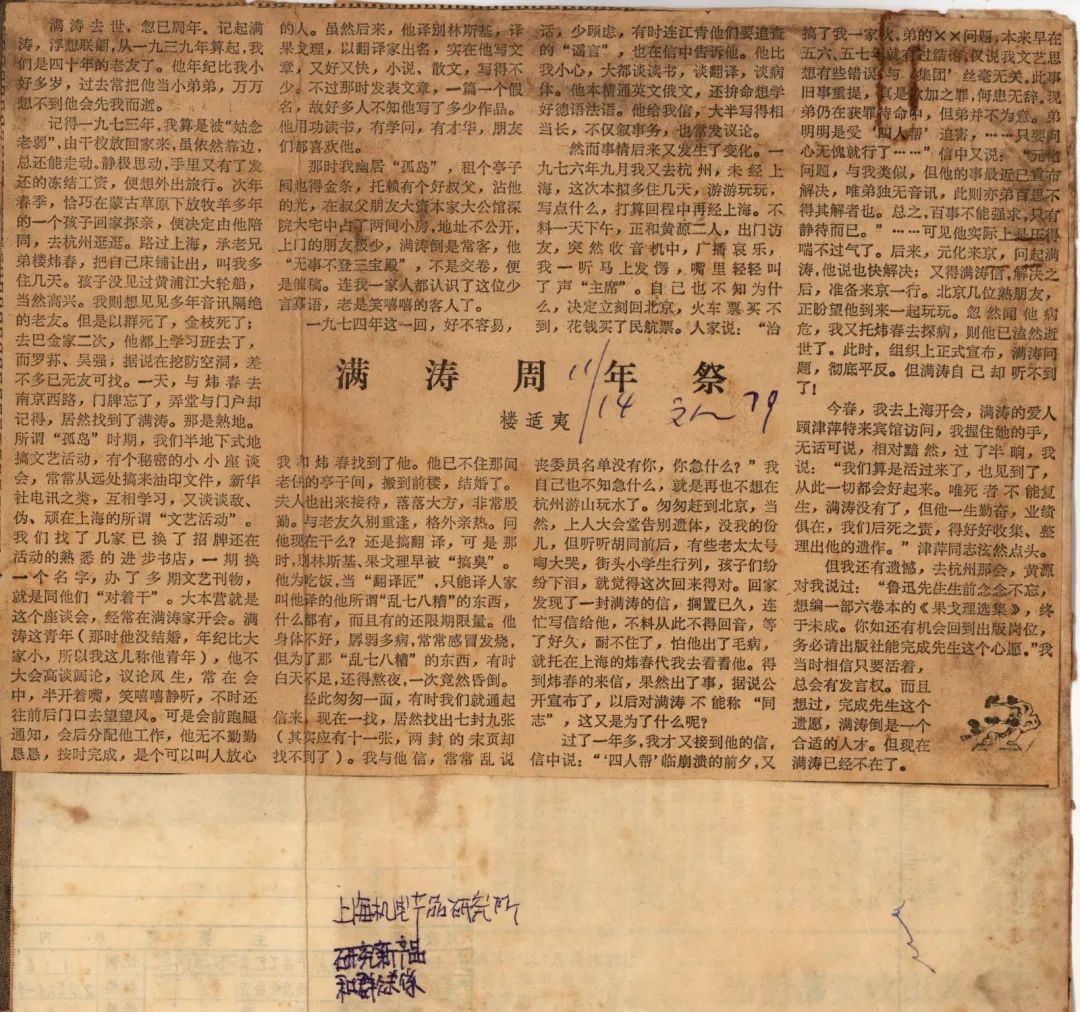 满涛周年祭
楼适夷
11/14 文人 79
满涛去世，忽已周年。记起满
涛，浮想联翩，从一九三九年算起，我
们是四十年的老友了。他年纪比我小
好多岁，过去常把他当小弟弟，万万
想不到他会先我而逝。
记得一九七三年，我算是被“姑念
老弱”，由干校放回家来，虽依然靠边，
总还能走动。静极思动，手里又有了发
还的冻结工资，便想外出旅行。次年
春季，恰巧在蒙古草原下放牧羊多年
的一个孩子回家探亲，便决定由他陪
同，去杭州逛逛。路过上海，承老兄
弟楼炜春，把自己床铺让出，叫我多
住几天。孩子没见过黄浦江大轮船，
当然高兴。我则想见见多年音讯隔绝
的老友。但是以群死了，金枝死了；
去巴金家二次，他都上学习班去了，
而罗荪、吴强，据说在挖防空洞，差
不多已无友可找。一天，与炜春去
南京西路，门牌忘了，弄堂与门户却
记得，居然找到了满涛。那是熟地。
所谓“孤岛”时期，我们半地下式地
搞文艺活动，有个秘密的小小座谈
会，常常从远处搞来油印文件，新华
社电讯之类，互相学习，又谈谈敌、
伪、顽在上海的所谓“文艺活动”。
我们找了几家已换了招牌还在
活动的熟悉的进步书店，一期换
一个名字，办了多期文艺刊物，
就是同他们“对着干”。大本营就是
这个座谈会，经常在满涛家开会。满
涛这青年（那时他没结婚，年纪比大
家小，所以我这儿称他青年），他不
大会高谈阔论，议论风生，常在会
中，半开着嘴，笑嘻嘻静听，不时还
往前后门口去望望风。可是会前跑腿
通知，会后分配他工作，他无不勤勤
恳恳，按时完成，是个可以叫人放心
的人。虽然后来，他译别林斯基，译
果戈理，以翻译家出名，实在他写文
章，又好又快，小说、散文，写得不
少。不过那时发表文章，一篇一个假
名，故好多人不知他写了多少作品。
他用功读书，有学问，有才华，朋友
们都喜欢他。
那时我幽居“孤岛”，租个亭子
间也得金条，托赖有个好叔父，沾他
的光，在叔父朋友大资本家大公馆深
院大宅中占了两间小房，地址不公开，
上门的朋友极少，满涛倒是常客，他
“无事不登三宝殿”，不是交卷，便
是催稿。连我一家人都认识了这位少
言寡语，老是笑嘻嘻的客人了。
一九七四年这一回，好不容易，
我和炜春找到了他。他已不住那间
老住的亭子间，搬到前楼，结婚了。
夫人也出来接待，落落大方，非常殷
勤。与老友久别重逢，格外亲热。问
他现在干么？还是搞翻译，可是那
时，别林斯基、果戈理早被“搞臭”。
他为吃饭，当“翻译匠”，只能译人家
叫他译的他所谓“乱七八糟”的东西，
什么都有，而且有的还限期限量。他
身体不好，孱弱多病，常常感冒发烧，
但为了那“乱七八糟”的东西，有时
白天不足，还得熬夜，一次竟然昏倒。
经此匆匆一面，有时我们就通起
信来，现在一找，居然找出七封九张
（其实应有十一张，两封的末页却
找不到了）。我与他信，常常乱说
话，少顾虑，有时连江青他们要追查
的“谣言”，也在信中告诉他。他比
我小心，大都谈读书，谈翻译，谈病
体。他本精通英文俄文，还拚命想学
好德语法语。他给我信，大半写得相
当长，不仅叙事务，也常发议论。
然而事情后来又发生了变化。一
九七六年九月我又去杭州，未经上
海，这次本拟多住几天，游游玩玩，
写点什么，打算回程中再经上海。不
料一天下午，正和黄源二人，出门访
友，突然收音机中，广播哀乐，
我一听马上发愣，嘴里轻轻叫
了声“主席”。自己也不知为什
么，决定立刻回北京，火车票买不
到，花钱买了民航票。人家说：“治
丧委员名单没有你，你急什么？”我
自己也不知急什么，就是再也不想在
杭州游山玩水了。匆匆赶到北京，当
然，上人大会堂告别遗体，没我的份
儿，但听听胡同前后，有些老太太号
啕大哭，街头小学生行列，孩子们纷
纷下泪，就觉得这次回来得对。回家
发现了一封满涛的信，搁置已久，连
忙写信给他，不料从此不得回音，等
了好久，耐不住了，怕他出了毛病，
就托在上海的炜春代我去看看他。得
到炜春的来信，果然出了事，据说公
开宣布了，以后对满涛不能称“同
志”，这又是为了什么呢？
过了一年多，我才又接到他的信，
信中说：“‘四人帮’临崩溃的前夕，又
搞了我一家伙，弟的××问题，本来早在
五六、五七年就有过结论，仅说我文艺思
想有些错误，与‘集团’丝毫无关。此事
旧事重提，真是欲加之罪，何患无辞。现
弟仍在获罪待命中，但弟并不为意。弟
明明是受‘四人帮’迫害，……只要问
心无愧就行了……”信中又说：“元化
问题，与我类似，但他的事最近已重布
解决，唯弟独无音讯，此则亦弟百思不
得其解者也。总之，百事不能强求，只有
静待而已。”……可见他实际上是压得
喘不过气了。后来，元化来京，问起满
涛，他说也快解决；又得满涛信，解决之
后，准备来京一行。北京几位熟朋友，
正盼望他到来一起玩玩。忽然闻他病
危，我又托炜春去探病，则他已溘然逝
世了。此时，组织上正式宣布，满涛问
题，彻底平反。但满涛自己却听不到
了！
今春，我去上海开会，满涛的爱人
顾津萍特来宾馆访问，我握住她的手，
无话可说，相对黯然，过了半晌，我
说：“我们算是活过来了，也见到了，
从此一切都会好起来。唯死者不能复
生，满涛没有了，但他一生勤奋，业绩
俱在，我们后死之责，得好好收集、整
理出他的遗作。”津萍同志泫然点头。
但我还有遗憾，去杭州那会，黄源
对我说过：“鲁迅先生生前念念不忘，
想编一部六卷本的《果戈理选集》，终
于未成。你如还有机会回到出版岗位，
务必请出版社能完成先生这个心愿。”我
当时相信只要活着，
总会有发言权。而且
想过，完成先生这个
遗愿，满涛倒是一个
合适的人才。但现在
满涛已经不在了。
上海机电产品研究所
研究新产品